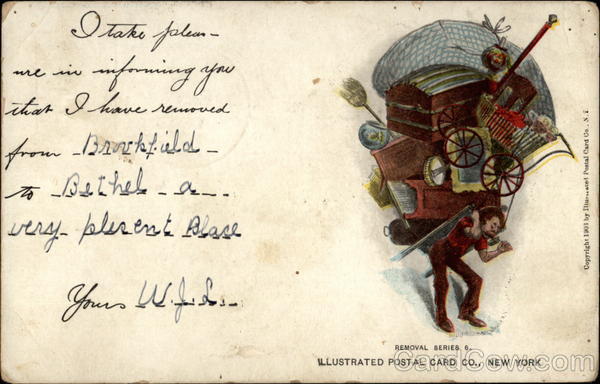 I take pleas-
ure in informing you
that I have removed
from Brookfield
to Bethel a
very plesent Place
Yours W.J.L.
Copyright 1903 by Illustrated Postal Card Co., N.Y.
REMOVAL SERIES 6.
ILLUSTRATED POSTAL CARD CO., NEW YORK.
CardCow.com